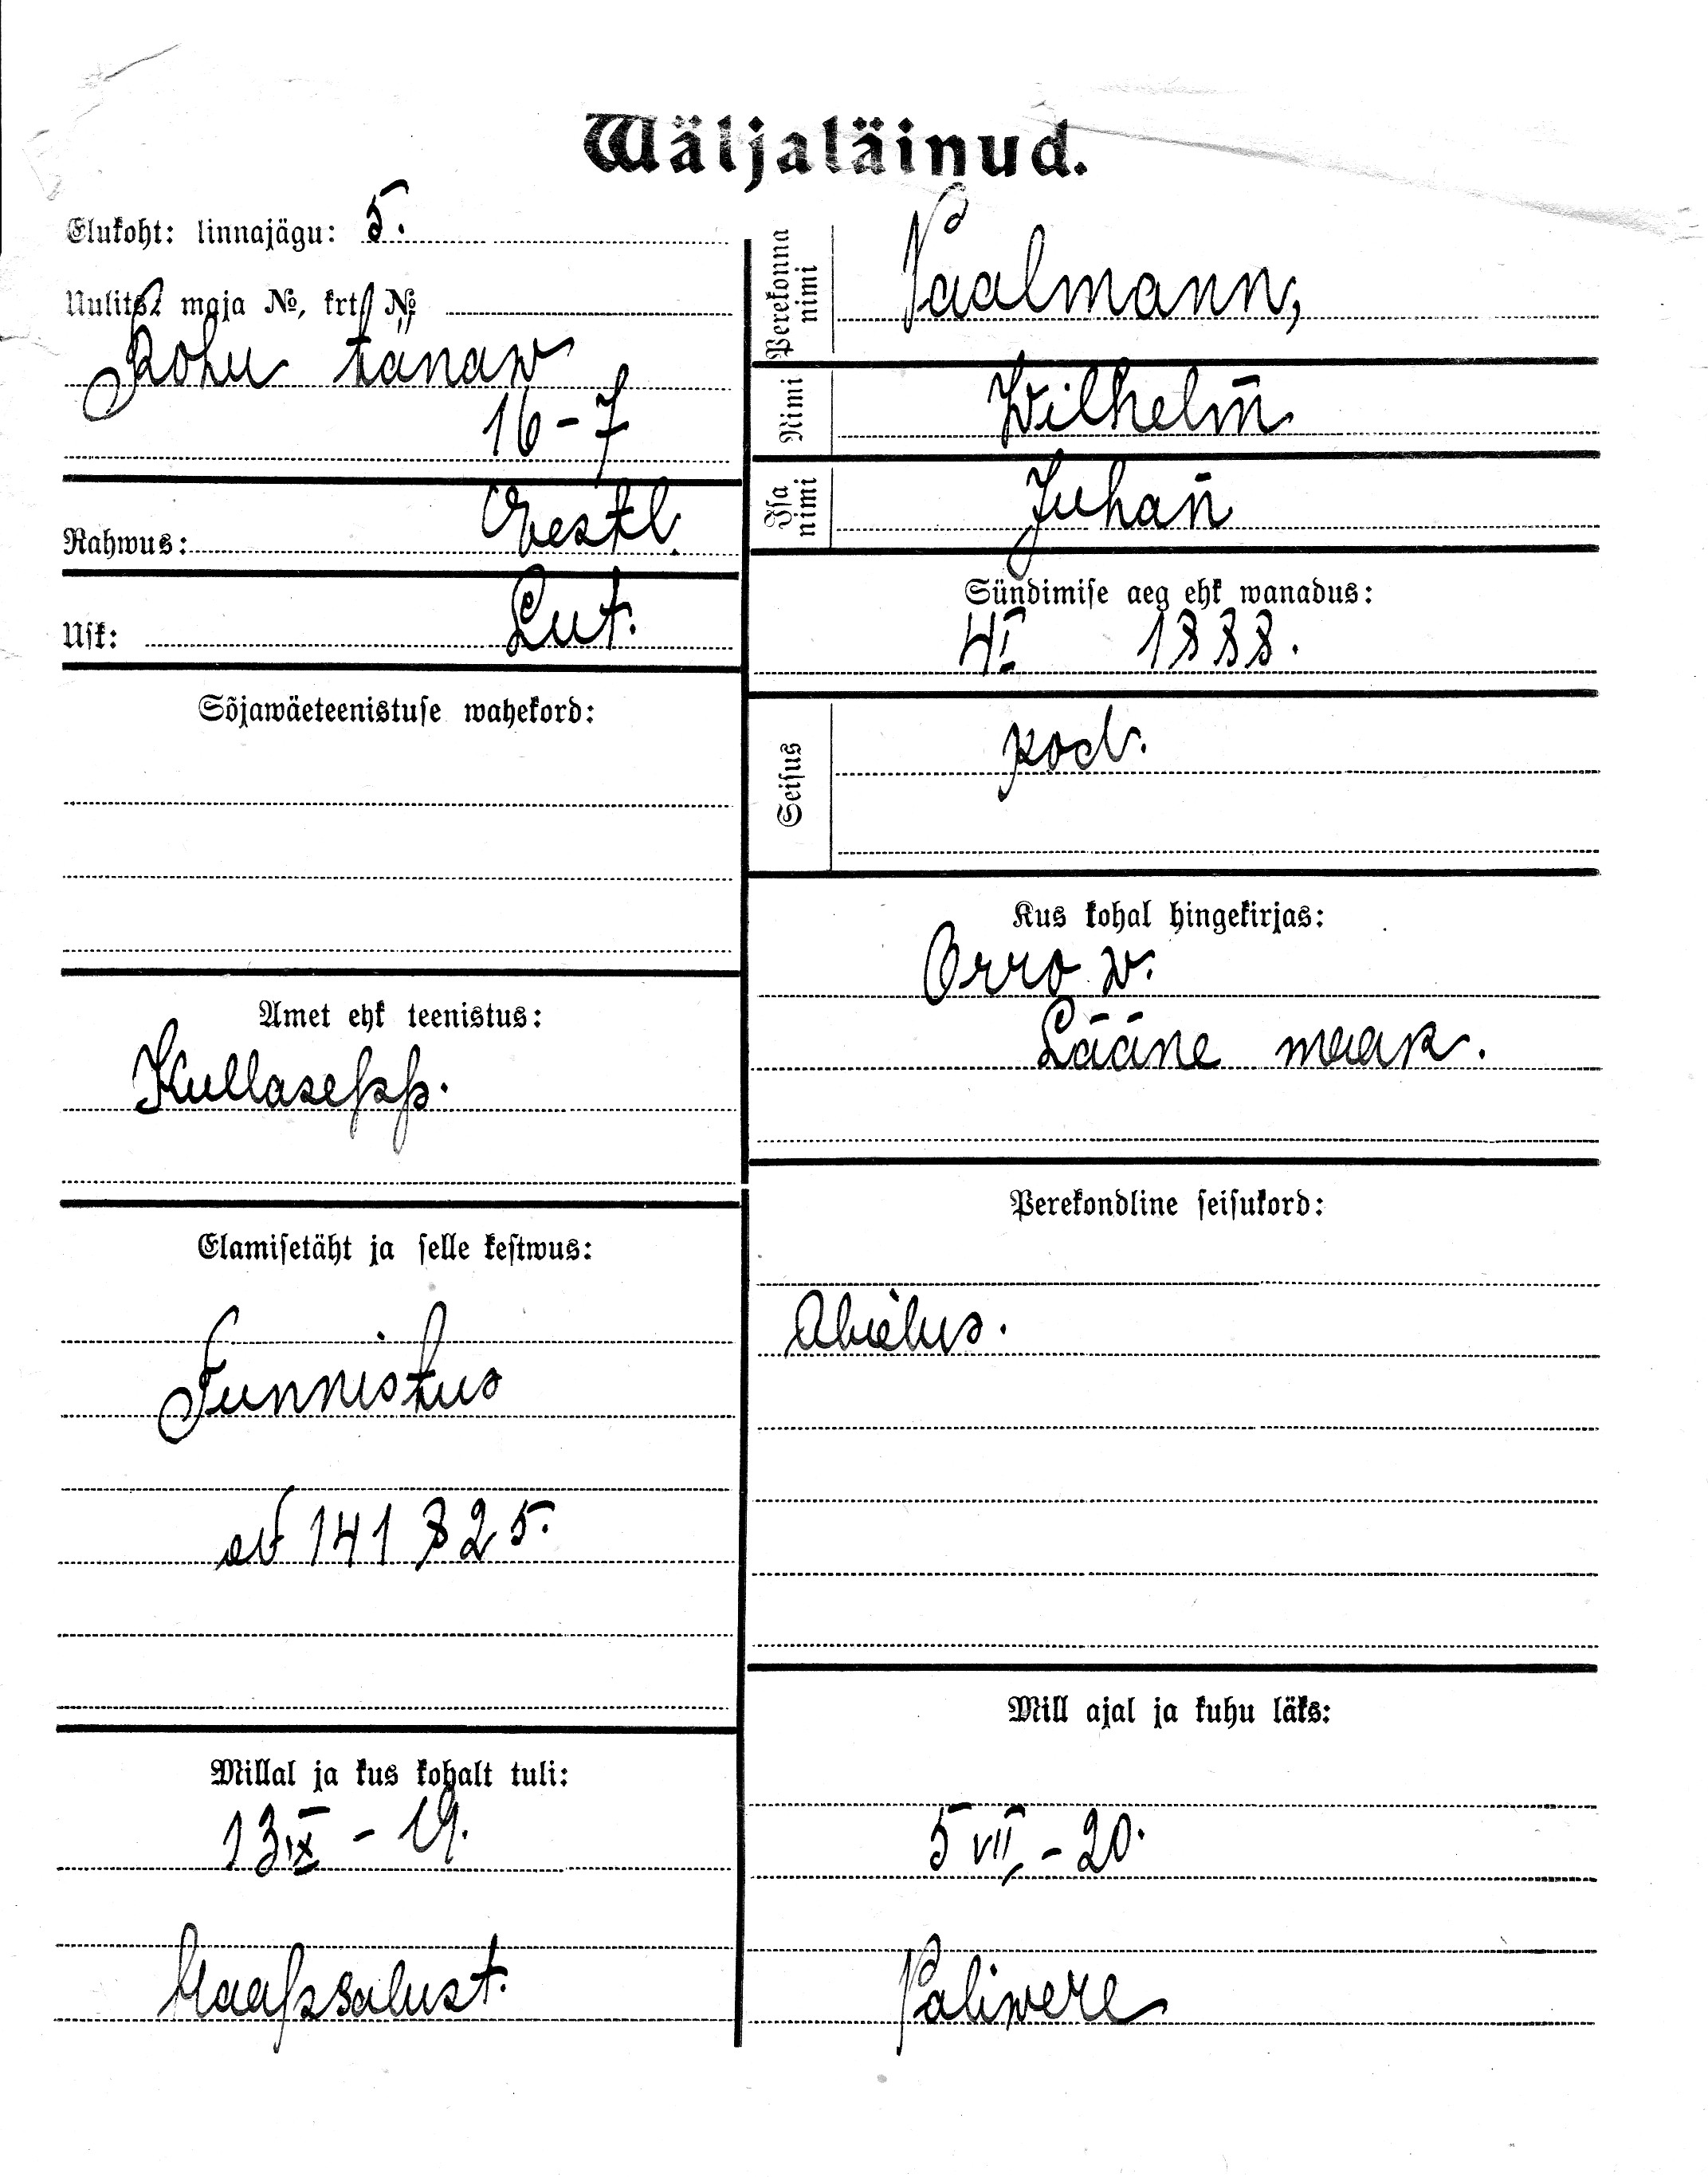 Wäljaläinud.
Elukoht: linnajägu: 5.
Uulits, maja №, krt. №
Kohu tänaw
16-7
Rahwus: Eestl.
Usk: Lut.
Sõjawäeteenistuse wahekord:
Amet ehk teenistus:
Kullasepp.
Elamisetäht ja selle kestwus:
Tunnistus
141825.
Millal ja kus kohalt tuli:
13 IX - 19.
Haapsalust.
Perekonna nimi
Paalmann,
Nimi Wilhelm
Isa nimi Juhan
Sündimise aeg ehk wanadus:
4 I 1888.
Seisus kod.
Kus kohal hingekirjas:
Orro w.
Lääne maak.
Perekondline seisukord:
Abielus.
Mill ajal ja kuhu läks:
5 VII - 20.
Paliwere